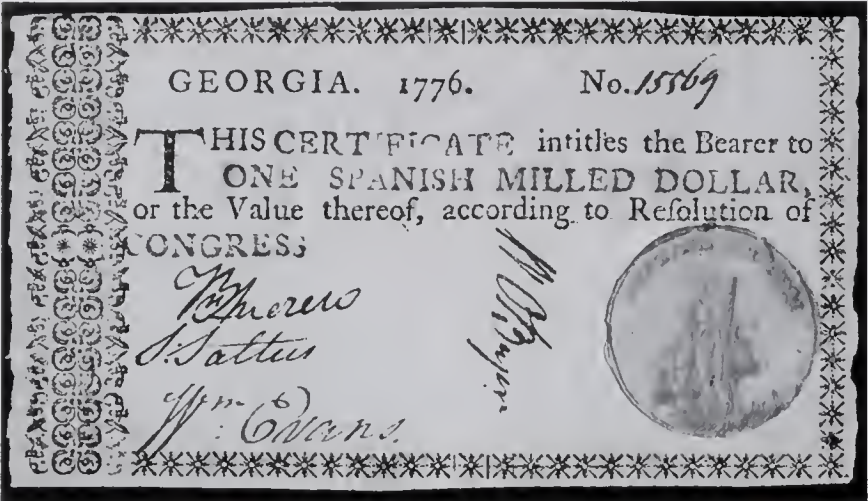 GEORGIA. 1776. No. 15569
THIS CERTIFICATE intitles the Bearer to
ONE SPANISH MILLED DOLLAR,
or the Value thereof, according to Reſolution of
CONGRESS
Wm
Wm: Evans.